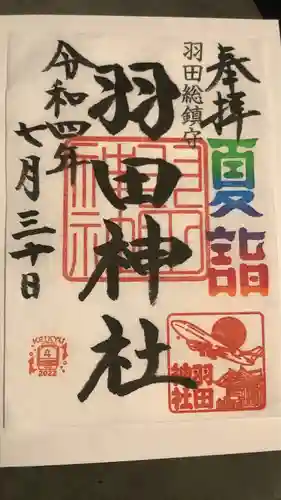 奉拝
夏詣
羽田総鎮守
羽田神社
令和四年
七月三十日
羽田
神社
KEIKYU
4
2022